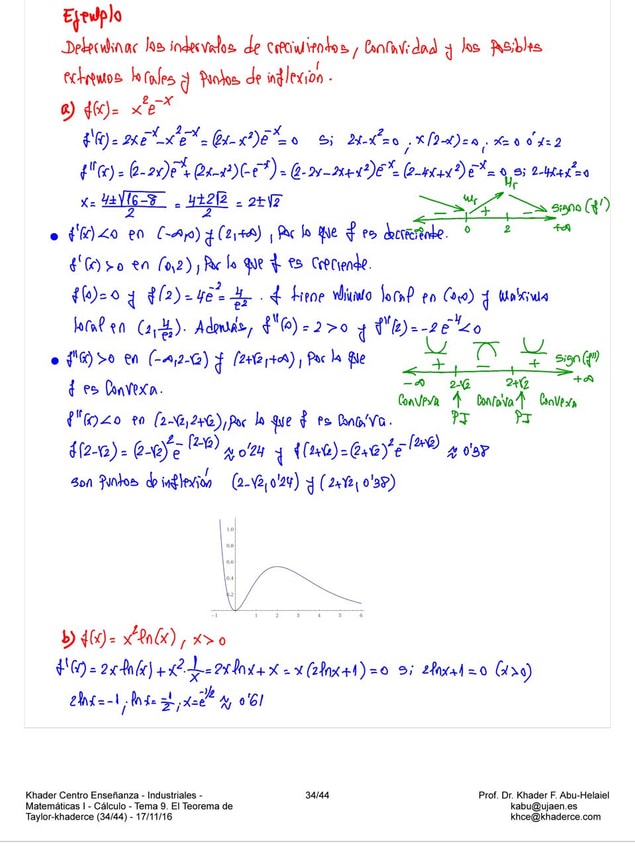 Ejemplo
Determinar los intervalos de crecimientos, concavidad y los posibles
extremos locales y puntos de inflexión.
a) f(x) = x²e^-x
f'(x) = 2xe^-x - x²e^-x = (2x-x²)e^-x = 0 si 2x-x²=0 ; x(2-x)=0 ; x=0 ó x=2
f''(x) = (2-2x)e^-x + (2x-x²)(-e^-x) = (2-2x-2x+x²)e^-x = (2-4x+x²)e^-x = 0 si 2-4x+x²=0
x = (4±√(16-8))/2 = (4±2√2)/2 = 2±√2
mr Mr
- + - signo(f')
-∞ 0 2 +∞
• f'(x)<0 en (-∞,0) y (2,+∞), por lo que f es decreciente.
f'(x)>0 en (0,2), por lo que f es creciente.
f(0)=0 y f(2)=4e^-2 = 4/e². f tiene mínimo local en (0,0) y máximo
local en (2, 4/e²). Además, f''(0)=2>0 y f''(2)=-2e^-4<0
• f''(x)>0 en (-∞,2-√2) y (2+√2,+∞), por lo que
f es convexa.
+ - + sign(f'')
-∞ 2-√2 2+√2 +∞
convexa ↑ concáva ↑ convexa
PI PI
f''(x)<0 en (2-√2,2+√2), por lo que f es concáva.
f(2-√2)=(2-√2)²e^-(2-√2) ≈ 0'24 y f(2+√2)=(2+√2)²e^-(2+√2) ≈ 0'38
son puntos de inflexión (2-√2,0'24) y (2+√2,0'38)
1.0
0.8
0.6
0.4
0.2
-1 1 2 3 4 5 6
b) f(x) = x²ln(x), x>0
f'(x) = 2xln(x) + x²·1/x = 2xlnx + x = x(2lnx+1) = 0 si 2lnx+1=0 (x>0)
2lnx=-1 ; lnx=-1/2 ; x=e^-1/2 ≈ 0'61
Khader Centro Enseñanza - Industriales -
Matemáticas I - Cálculo - Tema 9. El Teorema de
Taylor-khaderce (34/44) - 17/11/16
34/44
Prof. Dr. Khader F. Abu-Helaiel
kabu@ujaen.es
khce@khaderce.com